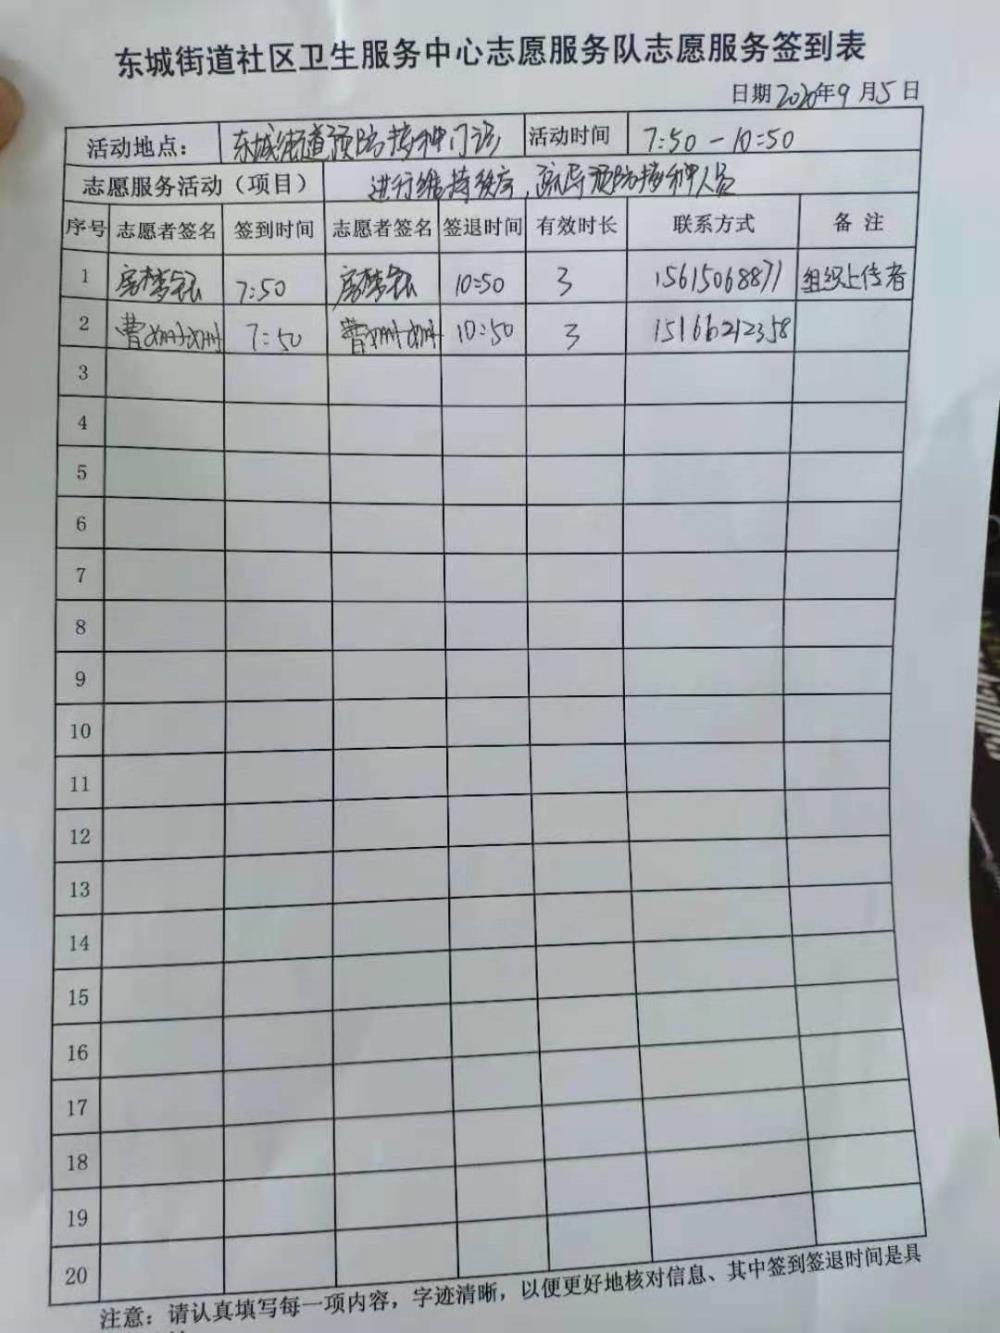 东城街道社区卫生服务中心志愿服务队志愿服务签到表
日期2020年9月5日
活动地点： 东城街道预防接种门诊 活动时间 7:50-10:50
志愿服务活动（项目） 进行维持秩序，疏导预防接种人员
序号 志愿者签名 签到时间 志愿者签名 签退时间 有效时长 联系方式 备注
1 7:50 10:50 3 15615068871 组织上传者
2 曹姗姗 7:50 曹姗姗 10:50 3 15166212358
3
4
5
6
7
8
9
10
11
12
13
14
15
16
17
18
19
20
注意：请认真填写每一项内容，字迹清晰，以便更好地核对信息、其中签到签退时间是具